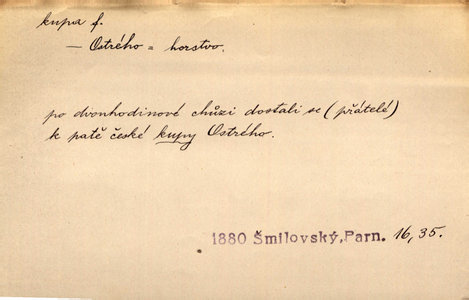 kupa f.
— Ostrého = horstvo.
po dvouhodinové chůzi dostali se (přátelé)
k patě české kupy Ostrého.
1880 Šmilovský, Parn. 16, 35.